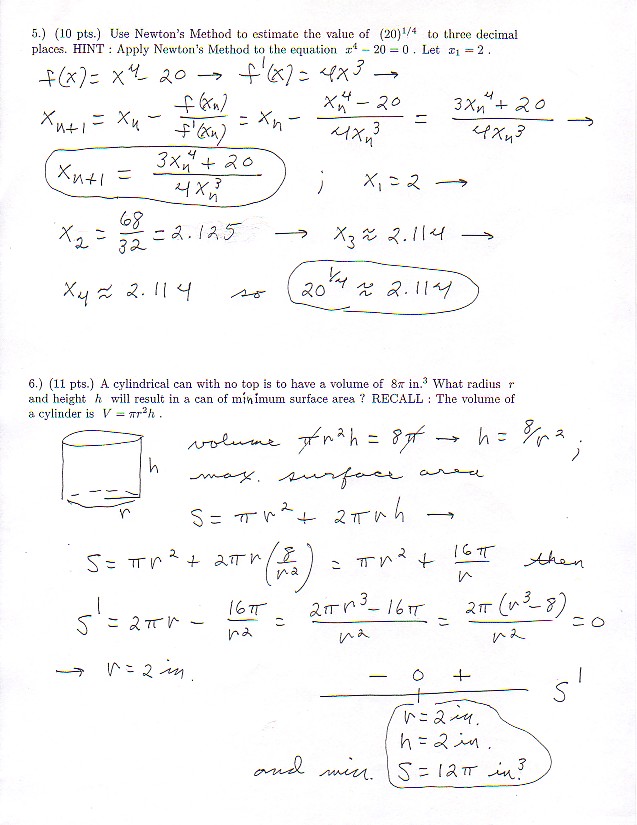 5.) (10 pts.) Use Newton's Method to estimate the value of (20)^{1/4} to three decimal
places. HINT : Apply Newton's Method to the equation x^4 − 20 = 0 . Let x_1 = 2 .
f(x) = x^4 - 20 → f'(x) = 4x^3 →
x_{n+1} = x_n - f(x_n)/f'(x_n) = x_n - (x_n^4 - 20)/(4x_n^3) = (3x_n^4 + 20)/(4x_n^3) →
x_{n+1} = (3x_n^4 + 20)/(4x_n^3) ; x_1 = 2 →
x_2 = 68/32 = 2.125 → x_3 ≈ 2.114 →
x_4 ≈ 2.114 so 20^{1/4} ≈ 2.114
6.) (11 pts.) A cylindrical can with no top is to have a volume of 8π in.^3 What radius r
and height h will result in a can of minimum surface area ? RECALL : The volume of
a cylinder is V = πr^2h .
volume πr^2h = 8π → h = 8/r^2 ;
h max. surface area
r S = πr^2 + 2πrh →
S = πr^2 + 2πr(8/r^2) = πr^2 + 16π/r then
S' = 2πr - 16π/r^2 = (2πr^3 - 16π)/r^2 = 2π(r^3 - 8)/r^2 = 0
→ r = 2 in.
- 0 + S'
r = 2 in.
h = 2 in.
and min. S = 12π in.^3